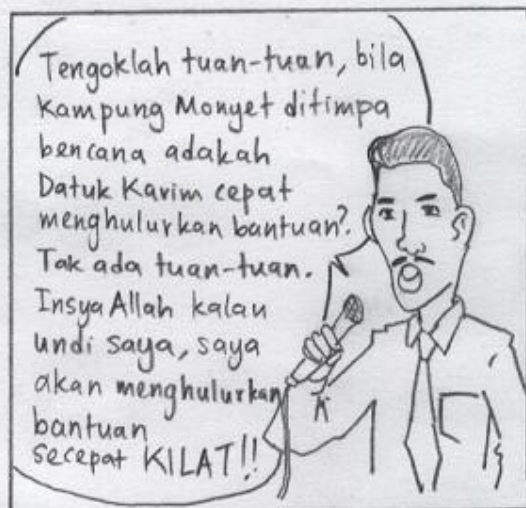 Tengoklah tuan-tuan, bila
Kampung Monyet ditimpa
bencana adakah
Datuk Karim cepat
menghulurkan bantuan?.
Tak ada tuan-tuan.
InsyaAllah kalau
undi saya, saya
akan menghulurkan
bantuan
secepat KILAT!!